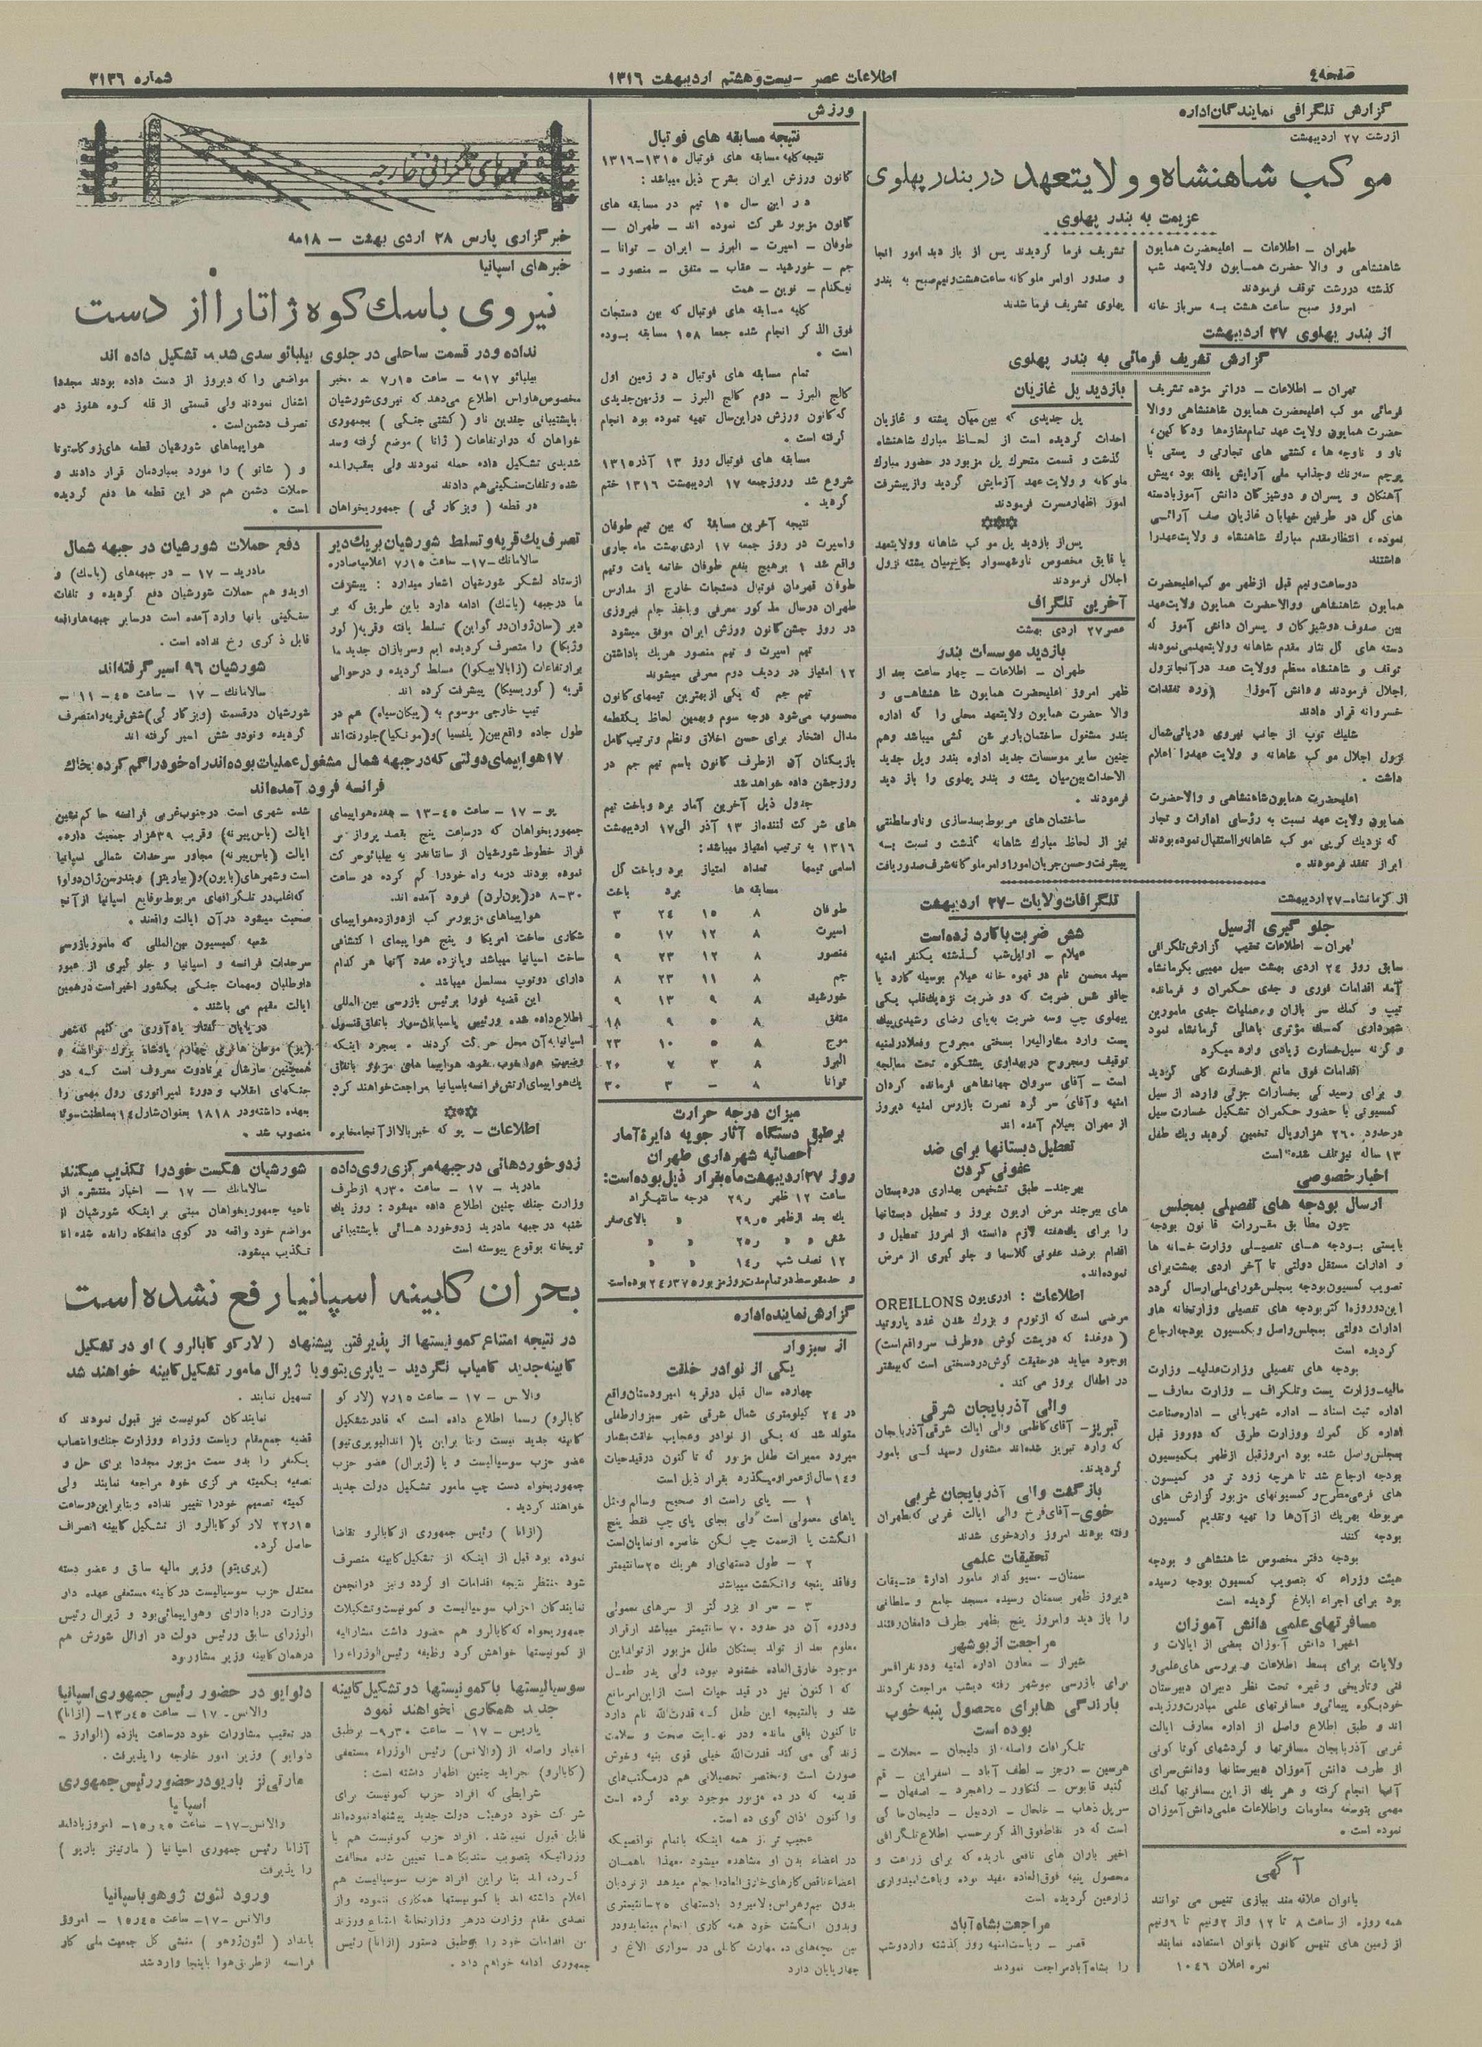 صفحه٤
اطلاعات عصر - بیست‌وهشتم اردیبهشت ۱۳۱۶
شماره ۳۱۳۶
گزارش تلگرافی نمایندگان اداره
ازرشت ۲۷ اردیبهشت
موکب شاهنشاه و ولایتعهد در بندر پهلوی
عزیمت به بندر پهلوی
طهران – اطلاعات – اعلیحضرت همایون
شاهنشاهی و والا حضرت همایون ولایتعهد شب
گذشته دررشت توقف فرمودند
امروز صبح ساعت هشت بسه سرباز خانه
تشریف فرما گردیدند پس از باز دید امور آنجا
و صدور اوامر ملوکانه ساعت‌هشت‌ونیم‌صبح به بندر
پهلوی تشریف فرما شدند
از بندر پهلوی ۲۷ اردیبهشت
گزارش تشریف فرمائی به بندر پهلوی
تهران – اطلاعات – دراثر مژده تشریف
فرمائی موکب اعلیحضرت همایون شاهنشاهی ووالا
حضرت همایون ولایت عهد تمام‌مغازه‌ها ودکاکین،
ناو و ناوچه‌ها، کشتی های تجارتی و پستی با
پرچم سه‌رنگ وجذاب ملی آرایش یافته بود، پیش
آهنگان و پسران و دوشیزگان دانش آموزبادسته
های گل در طرفین خیابان غازیان صف آرائی
نموده، انتظارمقدم مبارك شاهنشاه و ولایت‌عهدرا
داشتند
دوساعت‌ونیم قبل ازظهر موکب‌اعلیحضرت
همایون شاهنشاهی ووالاحضرت همایون ولایت‌عهد
بین صفوف دوشیزگان و پسران دانش آموز که
دسته های گل نثار مقدم شاهانه وولایتعهدمی‌نمودند
توقف و شاهنشاه معظم وولایت عهد درآنجانزول
اجلال فرمودند ودانش آموزان مورد تفقدات
خسروانه قرار دادند
شلیک توپ از جانب نیروی دریائی‌شمال
نزول اجلال موکب شاهانه و ولایت عهدرا اعلام
داشت .
اعلیحضرت همایون‌شاهنشاهی و والاحضرت
همایون ولایت عهد نسبت به رؤسای ادارات و تجار
که نزدیك گرپی موکب شاهانه‌رااستقبال‌نموده‌بودند
ابراز تفقد فرمودند .
بازدید پل غازیان
پل جدیدی که بین‌میان پشته و غازیان
احداث گردیده است از لحاظ مبارك شاهنشاه
گذشت و قسمت متحرك پل مزبور در حضور مبارك
ملوکانه و ولایت عهد آزمایش گردید وازپیشرفت
امور اظهارمسرت فرمودند
پس‌از بازدید پل موکب شاهانه وولایتعهد
با قایق مخصوص ناوشهسوار بکاخ‌میان پشته نزول
اجلال فرمودند
آخرین تلگراف
عصر۲۷ اردی بهشت
بازدید موسسات بندر
طهران – اطلاعات – چهار ساعت بعد از
ظهر امروز اعلیحضرت همایون شاهنشاهی و
والا حضرت همایون ولایتعهد محلی را که اداره
بندر مشغول ساختمان‌باربر غن کشی میباشد وهم
چنین سایر موسسات جدید اداره بندر وپل جدید
الاحداث بین‌میان پشته و بندر پهلوی را باز دید
فرمودند .
ساختمان های مربوط بسدسازی وناوسلطنتی
نیز از لحاظ مبارك شاهانه گذشت و نسبت به
پیشرفت وحسن‌جریان‌امورا وامرملوکانه‌شرف‌صدوریافت
از کرمانشاه-۲۷ اردیبهشت
جلوگیری ازسیل
تهران – اطلاعات تعقیب گزارش‌تلگرافی
سابق روز ۲٤ اردی بهشت سیل مهیبی بکرمانشاه
آمد اقدامات فوری و جدی حکمران و فرمانده
تیپ و کمك سر بازان و عملیات جدی مامورین
شهرداری کمك مؤثری باهالی کرمانشاه نمود
و گرنه سیل‌خسارت زیادی وارد میکرد
اقدامات فوق مانع ازخسارت کلی گردید
و برای رسیدگی بخسارات جزئی وارده از سیل
کمیسیونی با حضور حکمران تشکیل خسارت سیل
درحدود ۲۶۰ هزارریال تخمین گردید ویك طفل
۱۳ ساله نیزتلف شده‌است
اخبار خصوصی
ارسال بودجه های تفصیلی بمجلس
چون مطابق مقررات قانون بودجه
بایستی بودجه های تفصیلی وزارت خانه ها
و ادارات مستقل دولتی تا آخر اردی بهشت‌برای
تصویب کمسیون‌بودجه بمجلس‌شورای‌ملی‌ارسال گردد
این‌دوروزه اکثر بودجه های تفصیلی وزارتخانه هاو
ادارات دولتی بمجلس‌واصل وبکمسیون بودجه‌ارجاع
گردیده است
بودجه های تفصیلی وزارت‌عدلیه– وزارت
مالیه–وزارت پست وتلگراف – وزارت معارف –
اداره ثبت اسناد – اداره شهربانی – اداره‌صناعت
اداره کل گمرك ووزارت طرق که دوروز قبل
بمجلس‌واصل شده بود امروزقبل ازظهر بکمیسیون
بودجه ارجاع شد تا هرچه زود تر در کمیسون
های فرعی‌مطرح‌و کمسیونهای مزبور گزارش های
مربوطه بهریك ازآن‌ها را تهیه وتقدیم کمسیون
بودجه کنند
بودجه دفتر مخصوص شاهنشاهی و بودجه
هیئت وزراء که بتصویب کمسیون بودجه رسیده
بود برای اجراء ابلاغ گردیده است
مسافرتهای علمی دانش آموزان
اخیرا دانش آموزان بعضی از ایالات و
ولایات برای بسط اطلاعات و بررسی های‌علمی‌و
فنی وتاریخی و غیره تحت نظر دبیران دبیرستان
خودبکوه پیمائی‌و مسافرتهای علمی مبادرت‌ورزیده
اند و طبق اطلاع واصل از اداره معارف ایالت
غربی آذربایجان مسافرتها و گردشهای گوناگونی
از طرف دانش آموزان دبیرستانها ودانش‌سرای
آنجا انجام گرفته و هریك از این مسافرتها کمك
مهمی بتوسعه معلومات واطلاعات علمی‌دانش‌آموزان
نموده است .
آگهی
بانوان علاقه مند ببازی تنیس می توانند
همه روزه از ساعت ۸ تا ۱۲ واز ۲ونیم تا ۶ونیم
از زمین های تنیس کانون بانوان استفاده نمایند
نمره اعلان ۱۰٤۶
تلگرافات ولایات –۲۷ اردیبهشت
شش ضربت باکارد زده‌است
عیلام – اوایل‌شب گذشته یکنفر امنیه
سید محسن نام در قهوه خانه عیلام بوسیله کارد یا
چاقو شش ضربت که دو ضربت نزدیك‌قلب یکی
بپهلوی چپ وسه ضربت به‌پای رضای رشیدی‌پیك
پست وارد مشارالیه‌را بسختی مجروح وفعلادرامنیه
توقیف ومجروح دربهداری پشتکوه تحت معالجه
است – آقای سروان جهانشاهی فرمانده گردان
امنیه وآقای سر گرد نصرت بازرس امنیه دیروز
از مهران بعیلام آمده اند
تعطیل دبستانها برای ضد
عفونی کردن
بیرجند – طبق تشخیص بهداری دردبستان
های بیرجند مرض اریون بروز و تعطیل دبستانها
را برای یك‌هفته لازم دانسته از امروز تعطیل و
اقدام برضد عفونی کلاسها و جلو گیری از مرض
نموده‌اند.
اطلاعات : اوریون OREILLONS
مرضی است که ازتورم و بزرك شدن غدد پاروتید
( دوغده‌ که درپشت گوش دوطرف سرواقع‌است)
بوجود میآید درحقیقت گوش‌دردسختی است که‌بیشتر
در اطفال بروز می کند .
والی آذربایجان شرقی
تبریز – آقای‌کاظمی والی ایالت شرقی‌آذربایجان
که وارد تبریز شده‌اند مشغول رسید گی بامور
گردیدند.
بازگشت والی آذربایجان غربی
خوی – آقای‌فرخ والی ایالت غربی که‌بطهران
رفته بودند امروز واردخوی شدند
تحقیقات علمی
سمنان – مسیو گدار مامور ادارۀ عتیقات
دیروز ظهر بسمنان رسیده مسجد جامع و سلطانی
را باز دید وامروز پنج بظهر طرف دامغان‌رفتند
مراجعت از بوشهر
شیراز – معاون اداره امنیه ودونفرافسر
برای بازرسی ببوشهر رفته دیشب مراجعت کردند
بارندگی هابرای محصول پنبه خوب
بوده است
تلگرافات واصله از دلیجان – محلات –
هرسین – درجز – لطف آباد – اسفراین – قم
گنبد قابوس – لنگاور – راهجرد – اصفهان –
سرپل ذهاب – خلخال – اردبیل – دلیجان‌حاکی
است که در نقاط‌فوق‌الذکر برحسب اطلاع‌تلگرافی
اخیر باران های نافعی باریده که برای زراعت و
محصول پنبه فوق‌العاده مفید بوده وباعث‌امیدواری
زارعین گردیده است
مراجعت بشاه‌آباد
قصر – ریاست‌امنیه روز گذشته واردوشب
را بشاه‌آبادمراجعت نمودند
ورزش
نتیجه مسابقه های فوتبال
نتیجه‌کلیه مسابقه های فوتبال ۱۳۱۵–۱۳۱۶
کانون ورزش ایران بشرح ذیل میباشد :
در این سال ۱۵ تیم در مسابقه های
کانون مزبور شرکت نموده اند – طهران –
طوفان – اسپرت – البرز – ایران – توانا –
جم – خورشید – عقاب – متفق – منصور –
نیکنام – نوین – همت
کلیه مسابقه های فوتبال که بین دستجات
فوق الذکر انجام شده جمعا ۱۵۸ مسابقه بوده
است .
تمام مسابقه های فوتبال در زمین اول
کالج البرز – دوم کالج البرز – وزمین‌جدیدی
که‌کانون ورزش دراین‌سال تهیه نموده بود انجام
گرفته است .
مسابقه های فوتبال روز ۱۳ آذر۱۳۱۵
شروع شد وروزجمعه ۱۷ اردیبهشت ۱۳۱۶ ختم
گردید .
نتیجه آخرین مسابقۀ که بین تیم طوفان
واسپرت در روز جمعه ۱۷ اردی‌بهشت ماه جاری
واقع شد ۱ برهیچ بنفع طوفان خاتمه یافت وتیم
طوفان قهرمان فوتبال دستجات خارج از مدارس
طهران درسال مذکور معرفی وباخذ جام فیروزی
در روز جشن‌کانون ورزش ایران موفق میشود
تیم اسپرت و تیم منصور هریك باداشتن
۱۲ امتیاز در ردیف دوم معرفی میشوند
تیم جم که یکی از بهترین تیمهای‌کانون
محسوب می‌شود درجه سوم وبهمین لحاظ یکقطعه
مدال افتخار برای حسن اخلاق ونظم وترتیب‌کامل
بازیکنان آن ازطرف کانون باسم تیم جم در
روزجشن داده خواهد شد
جدول ذیل آخرین آمار برد وباخت تیم
های شرکت کننده‌از ۱۳ آذر الی۱۷ اردیبهشت
۱۳۱۶ به ترتیب امتیاز میباشد :
اسامی تیمها تعداد امتیاز برد وباخت گل
مسابقه ها برد باخت
طوفان ۸ ۱۵ ۲٤ ۳
اسپرت ۸ ۱۲ ۱۷ ۵
منصور ۸ ۱۲ ۲۳ ۹
جم ۸ ۱۱ ۲۳ ۸
خورشید ۸ ۹ ۱۳ ۹
متفق ۸ ۵ ۹ ۱۸
موج ۸ ۵ ۱۰ ۲۳
البرز ۸ ۳ ۷ ۲۶
توانا ۸ – ۳ ۳۰
میزان درجه حرارت
برطبق دستگاه آثار جویه دایرۀ آمار
احصائیه شهرداری طهران
روز ۲۷اردیبهشت‌ماه‌بقرار ذیل‌بوده‌است:
ساعت ۱۲ ظهر ۲۹٫ درجه سانتیگراد
یك بعد ازظهر ۲۹٫۵ « بالای‌صفر
شش « ۲۵٫ « «
۱۲ نصف شب ۱٤٫ « «
و حدمتوسط درتمام‌مدت‌روزمزبور ۲٤٫۳۷۵ بوده‌است
گزارش نماینده اداره
از سبزوار
یکی از نوادر خلقت
چهارده سال قبل درقریه امیرودستان‌واقع
در ۲٤ کیلومتری شمال شرقی شهر سبزوارطفلی
متولد شد که یکی از نوادر وعجایب خلقت‌بشمار
میرود ممیزات طفل مزبور که تا کنون درقیدحیات
و۱٤سال‌ازعمر اومیگذرد بقرار ذیل است
۱ – پای راست او صحیح وسالم‌ومثل
پاهای معمولی است ولی بجای پای‌چپ فقط پنج
انگشت یا ازسمت چپ لگن خاصره اونمایان‌است
۲ – طول دستهای‌او هریك ۲۵سانتیمتر
وفاقد پنجه وانگشت میباشد
۳ – سر او بزرگتر از سرهای معمولی
ودوره آن در حدود ۷۰ سانتیمتر میباشد ازقرار
معلوم بعد از تولد بستگان طفل مزبور ازتولداین
موجود خارق‌العاده خشنود نبود، ولی پدر طفل
که اکنون نیز در قید حیات است ازاین‌امرمانع
شد و بالنتیجه این طفل که قدرت‌الله نام دارد
تا کنون باقی مانده ودر نهایت صحت و سلامت
زندگی می کند قدرت‌الله خیلی قوی بنیه وخوش
صورت است ومختصر تحصیلاتی هم درمکتب‌های
قدیمه که در ده مزبور موجود بوده کرده است
واکنون اذان گوی ده است.
عجیب تر از همه اینکه باتمام نواقصیکه
در اعضاء بدن او مشاهده میشود .مهذا باهمان
اعضاءناقص‌کارهای‌خارق‌العاده‌انجام میدهد ازنردبان
بدون بیم‌وهراس‌بالامیرود بادستهای ۲۵سانتیمتری
وبدون انگشت خود همه کاری انجام مینمایدودر
بین بچه‌های ده مهارت کاملی در سواری الاغ و
چهارپایان دارد
خبرهای تلگرافی خارجه
خبرگزاری پارس ۲۸ اردی بهشت – ۱۸مه
خبرهای اسپانیا
نیروی باسك کوه ژاتارا از دست
نداده ودر قسمت ساحلی در جلوی بیلبائو سدی شدید تشکیل داده اند
بیلبائو ۱۷مه – ساعت ۷٫۱۵ – مخبر
مخصوص‌هاواس اطلاع می‌دهد که نیروی‌شورشیان
باپشتیبانی چندین ناو ( کشتی جنگی ) بجمهوری
خواهان که درارتفاعات ( ژاتا ) موضع گرفته وسد
شدیدی تشکیل داده حمله نمودند ولی بعقب‌رانده
شده وتلفات‌سنگینی‌هم دادند
در قطعه ( ویزکار گی ) جمهوریخواهان
مواضعی را که دیروز از دست داده بودند مجددا
اشغال نمودند ولی قسمتی از قله کوه هنوز در
تصرف دشمن‌است .
هواپیماهای شورشیان قطعه های‌زوکاستوتا
و ( شانو ) را مورد بمباردمان قرار دادند و
حملات دشمن هم در این قطعه ها دفع گردیده
است .
تصرف‌یك قریه وتسلط شورشیان بریك‌دیر
سالامانك –۱۷– ساعت ۷٫۱۵ اعلامیه‌صادره
ازستاد لشکر شورشیان اشعار میدارد : پیشرفت
ما درجبهه (باسك) ادامه دارد باین طریق که بر
دیر (سان‌ژوان‌درگواین) تسلط یافته وقریه( لور
وزیکا) را متصرف کردیده ایم وسربازان جدید ما
برارتفاعات (زابالابیکوا) مسلط گردیده و درحوالی
قریه ( گوریسیکا) پیشرفت کرده اند
تیپ خارجی موسوم به (پیکان‌سیاه) هم در
طول جاده واقع‌بین( پلنسیا )و(مونگیا)جلورفته‌اند
دفع حملات شورشیان در جبهه شمال
مادرید – ۱۷ – در جبهه‌های (باسك) و
اویدو هم حملات شورشیان دفع گردیده و تلفات
سنگینی بآنها وارد آمده است درسایر جبهه‌هاواقعه
قابل ذکری رخ نداده است .
شورشیان ۹۶ اسیر گرفته‌اند
سالامانك – ۱۷ – ساعت ٤۵ – ۱۱ –
شورشیان درقسمت (ویزکار گی)شش‌قریه‌رامتصرف
گردیده ونودو شش اسیر گرفته اند
۱۷هواپیمای‌دولتی که‌درجبهه شمال مشغول‌عملیات‌بوده‌اندراه خودراگم‌کرده‌بخاك
فرانسه فرود آمده‌اند
پو – ۱۷ – ساعت ٤۵–۱۳ – هفده‌هواپیمای
جمهوریخواهان که درساعت پنج بقصد پرواز بر
فراز خطوط شورشیان از سانتاندر به بیلبائوحرکت
نموده بودند درمه راه خودرا گم کرده در ساعت
۳۰–۸ در(پون‌لون) فرود آمده اند.
هواپیماهای مزبورمر کب ازدوازده‌هواپیمای
شکاری ساخت امریکا و پنج هواپیمای اکتشافی
ساخت اسپانیا میباشد وپانزده عدد آنها هر کدام
دارای دوتوپ مسلسل میباشد.
این قضیه فورا برئیس بازرسی بین‌المللی
اطلاع‌داده شده ورئیس پاسبانان‌سوار باتفاق قنسول
اسپانیابه آن محل حرکت کردند . بمجرد اینکه
وضعیت هواخوب شود، هواپیماهای مزبور باتفاق
یك‌هواپیمای‌ارتش‌فرانسه‌باسپانیا مراجعت‌خواهند کرد
اطلاعات – پو که خبر بالاازآنجامخابره
شده شهری است درجنوب‌غربی فرانسه حاکم‌نشین
ایالت (باس‌پیرنه) وقریب ۳۹هزار جمعیت دارد.
ایالت (باس‌پیرنه) مجاور سرحدات شمالی اسپانیا
است وشهرهای(بایون)و(بیاریتز) وبندرسن‌ژان‌دولوا
که‌اغلب‌در تلگرافهای مربوط‌بوقایع اسپانیا ازآنجا
صحبت میشود درآن ایالت واقعند .
شعبه کمسیون بین‌المللی که ماموربازرسی
سرحدات فرانسه و اسپانیا و جلو گیری از عبور
داوطلبان ومهمات جنگی بکشور اخیراست‌درهمین
ایالت مقیم می باشند .
درپایان گفتار یادآوری می کنیم که‌شهر
(پو) موطن هانری چهارم پادشاه بزرك فرانسه و
همچنین مارشال برنادوت معروف است که در
جنگهای انقلاب ودورۀ امپراتوری رول مهمی را
بعهده داشته‌ودر ۱۸۱۸ بعنوان‌شارل۱٤ بسلطنت‌سوئد
منصوب شد .
زدوخوردهائی درجبهه‌مرکزی‌روی‌داده
مادرید – ۱۷ – ساعت ۹٫۳۰ ازطرف
وزارت جنك چنین اطلاع داده میشود : روز یك
شنبه در جبهه مادرید زدوخورد هائی باپشتیبانی
توپخانه بوقوع پیوسته است
شورشیان شکست خودرا تکذیب میکنند
سالامانك – ۱۷ – اخبار منتشره از
ناحیه جمهوریخواهان مبنی بر اینکه شورشیان از
مواضع خود واقعه در کوی دانشگاه رانده شده اند
تکذیب میشود.
بحران کابینه اسپانیا رفع نشده است
در نتیجه امتناع کمونیستها از پذیرفتن پیشنهاد ( لارکو کابالرو ) او در تشکیل
کابینه‌جدید کامیاب نگردید – یاپری‌یتوویا ژیرال مامور تشکیل‌کابینه خواهند شد
والانس – ۱۷ – ساعت ۷٫۱۵ (لار کو
کابالرو) رسما اطلاع داده است که قادربتشکیل
کابینه جدید نیست وبنا براین یا( اندالیوپری‌تیو)
عضو حزب سوسیالیست و یا (ژیرال) عضو حزب
جمهوریخواه دست چپ مامور تشکیل دولت جدید
خواهند گردید .
(ازانا ) رئیس جمهوری ازکابالرو تقاضا
نموده بود قبل از اینکه از تشکیل‌کابینه منصرف
شود منتظر نتیجه اقدامات او گردد ونیز درانجمن
نمایندکان احزاب سوسیالیست و کمونیست‌وتشکیلات
جمهوریخواه که‌کابالرو هم حضور داشت مشارالیه
از کمونیستها خواهش کرد وظیفه رئیس‌الوزراء را
تسهیل نمایند .
نمایندکان کمونیست نیز قبول نمودند که
قضیه جمع‌مقام ریاست وزراء ووزارت جنك‌وانتصاب
یکنفر را بدو سمت مزبور مجددا برای حل و
تصفیه بکمیته مر کزی خود مراجعه نمایند ولی
کمیته تصمیم خودرا تغییر نداده وبنابراین‌درساعت
۲۲٫۱۵ لار کوکابالرو از تشکیل کابینه انصراف
حاصل کرد.
(پری‌یتو) وزیر مالیه سابق و عضو دسته
معتدل حزب سوسیالیست درکابینه مستعفی عهده دار
وزارت دریاداری وهواپیمائی‌بود و ژیرال رئیس
الوزرای سابق ورئیس دولت در اوائل شورش هم
درهمان کابینه وزیر مشاوربود
سوسیالیستها باکمونیستها درتشکیل‌کابینه
جدید همکاری نخواهند نمود
پاریس –۱۷– ساعت ۳۰–۹– برطبق
اخبار واصله از (والانس) رئیس الوزراء مستعفی
(کابالرو) بجراید چنین اظهار داشته است :
شرایطی که افراد حزب کمونیست برای
شرکت خود درهیئت دولت جدید پیشنهادنموده‌اند
قابل قبول نمیباشد. افراد حزب کمونیست هم با
وزرائیکه بتصویب سندیکاها تعیین شده مخالفت
کرده اند بنا براین افراد حزب سوسیالیست هم
اعلام داشته اند با کمونیستها همکاری ننموده واز
تصدی مقام وزارت درهر وزارتخانۀ امتناع ورزند
من اقدامات خود را برطبق دستور (ازانا) رئیس
جمهوری ادامه خواهم داد .
دلوایو در حضور رئیس جمهوری اسپانیا
والانس –۱۷– ساعت ٤۵–۱۳– (ازانا)
در تعقیب مشاورات خود درساعت یازده (الوارز –
دلوایو ) وزیر امور خارجه را پذیرفت.
مارتی‌نز باریودرحضوررئیس‌جمهوری
اسپانیا
والانس–۱۷– ساعت ٤۵–۱۵– امروزبامداد
آزانا رئیس جمهوری اسپانیا ( مارتینز باریو )
را پذیرفت
ورود لئون ژوهو باسپانیا
والانس –۱۷– ساعت ٤۵–۱۵ – امروز
بامداد ( لئون‌ژوهو ) منشی کل جمعیت ملی کار
فرانسه ازطریق‌هوا باینجا واردشد